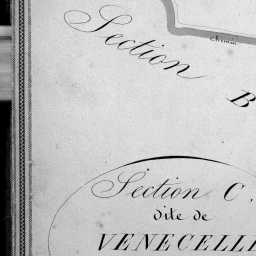 Section
chemin
B
Section C.
dite de
VENECELLE